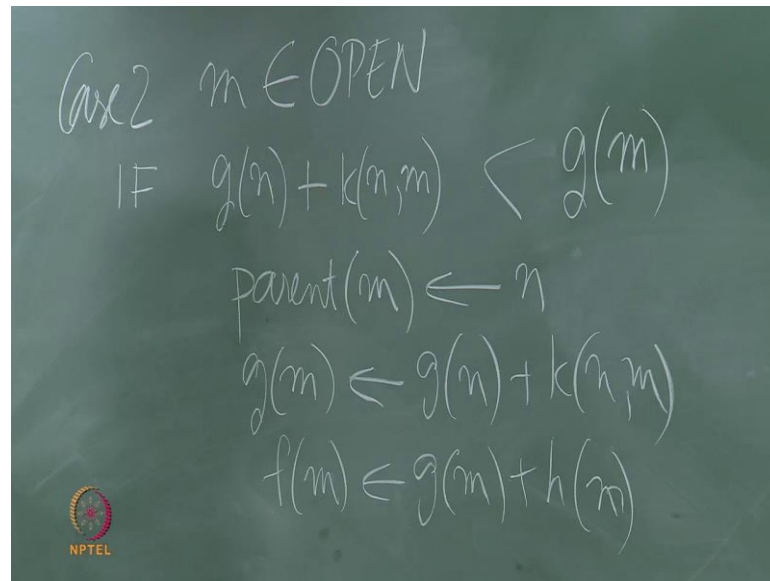 Case 2 m ∈ OPEN
IF g(n) + k(n,m) < g(m)
parent(m) ← n
g(m) ← g(n) + k(n,m)
f(m) ← g(m) + h(m)
NPTEL